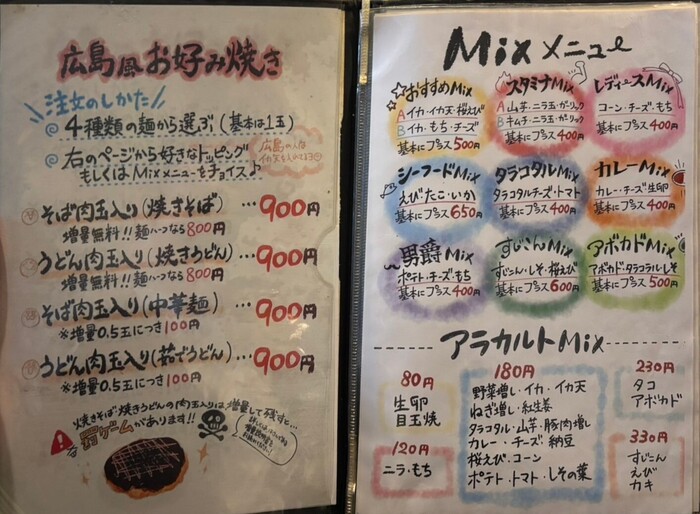 広島風お好み焼き
注文のしかた!!
◎4種類の麺から選ぶ(基本は1玉)
◎右のページから好きなトッピング
もしくはMixメニューをチョイス♪
広島の人は
そば肉玉入り(焼きそば)…900円
増量無料!!麺ハーフなら800円
うどん肉玉入り(焼きうどん)…900円
増量無料!!麺ハーフなら800円
そば肉玉入り(中華麺)…900円
※増量0.5玉につき100円
うどん肉玉入り(茹でうどん)…900円
※増量0.5玉につき100円
焼きそば・焼きうどんの肉玉入りは増量して残すと…
罰ゲームがあります!!
Mixメニュー
おすすめMix
A イカ・イカ天・桜えび
B イカ・もち・チーズ
基本にプラス500円
スタミナMix
A 山芋・ニラ玉・ガーリック
B キムチ・ニラ玉・ガーリック
基本にプラス400円
レディースMix
コーン・チーズ・もち
基本にプラス400円
シーフードMix
えび・たこ・いか
基本にプラス650円
タラコタルMix
タラコタル・チーズ・トマト
基本にプラス400円
カレーMix
カレー・チーズ・生卵
基本にプラス400円
男爵Mix
ポテト・チーズ・もち
基本にプラス400円
すじこんMix
すじこん・しそ・桜えび
基本にプラス600円
アボカドMix
アボカド・タラコタル・しそ
基本にプラス500円
アラカルトMix
80円
生卵
目玉焼
120円
ニラ・もち
180円
野菜増し・イカ・イカ天
ねぎ増し・紅生姜
タラコタル・山芋・豚肉増し
カレー・チーズ・納豆
桜えび・コーン
ポテト・トマト・しその葉
230円
タコ
アボカド
330円
すじこん
えび
カキ